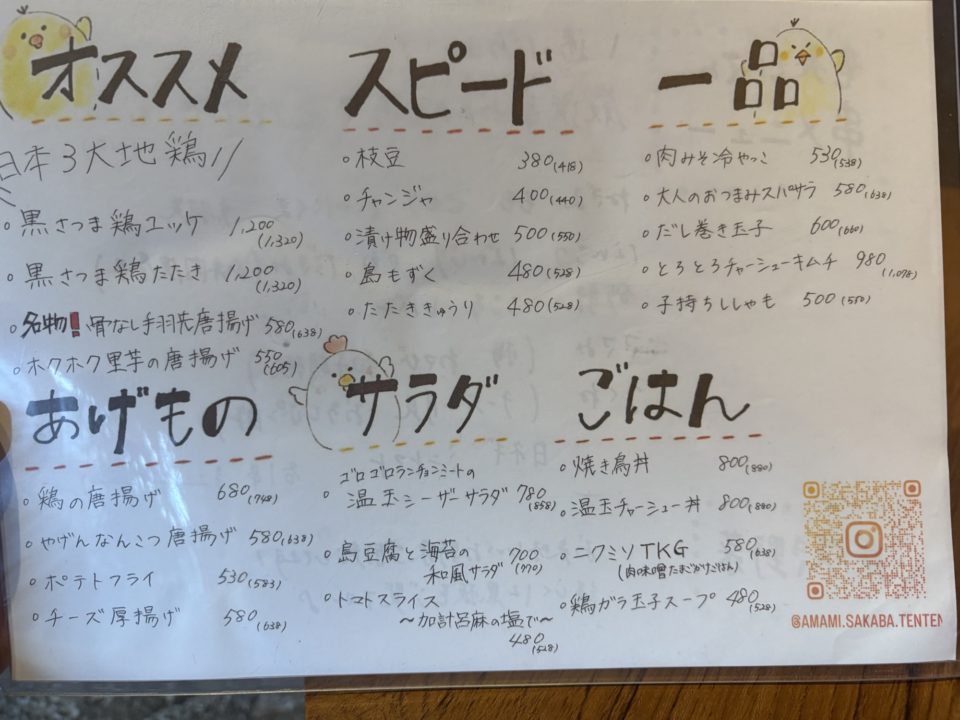 オススメ
日本3大地鶏!!
○黒さつま鶏ユッケ 1,200
(1,320)
○黒さつま鶏たたき 1,200
(1,320)
○名物!骨なし手羽先唐揚げ 580(638)
○ホクホク里芋の唐揚げ 550
(605)
スピード
○枝豆 380(418)
○チャンジャ 400(440)
○漬け物盛り合わせ 500(550)
○島もずく 480(528)
○たたききゅうり 480(528)
一品
○肉みそ冷やっこ 530(538)
○大人のおつまみスパサラ 580(638)
○だし巻き玉子 600(660)
○とろとろチャーシューキムチ 980
(1,078)
○子持ちししゃも 500(550)
あげもの
○鶏の唐揚げ 680(748)
○やげんなんこつ唐揚げ 580(638)
○ポテトフライ 530(583)
○チーズ厚揚げ 580(638)
サラダ
ゴロゴロランチョンミートの
○温玉シーザーサラダ 780
(858)
○島豆腐と海苔の 700
和風サラダ (770)
○トマトスライス
~加計呂麻の塩で~
480(528)
ごはん
○焼き鳥丼 800(880)
○温玉チャーシュー丼 800(880)
○ニクミソTKG 580(638)
(肉味噌たまごかけごはん)
○鶏ガラ玉子スープ 480
(528)
@AMAMI.SAKABA.TENTEN